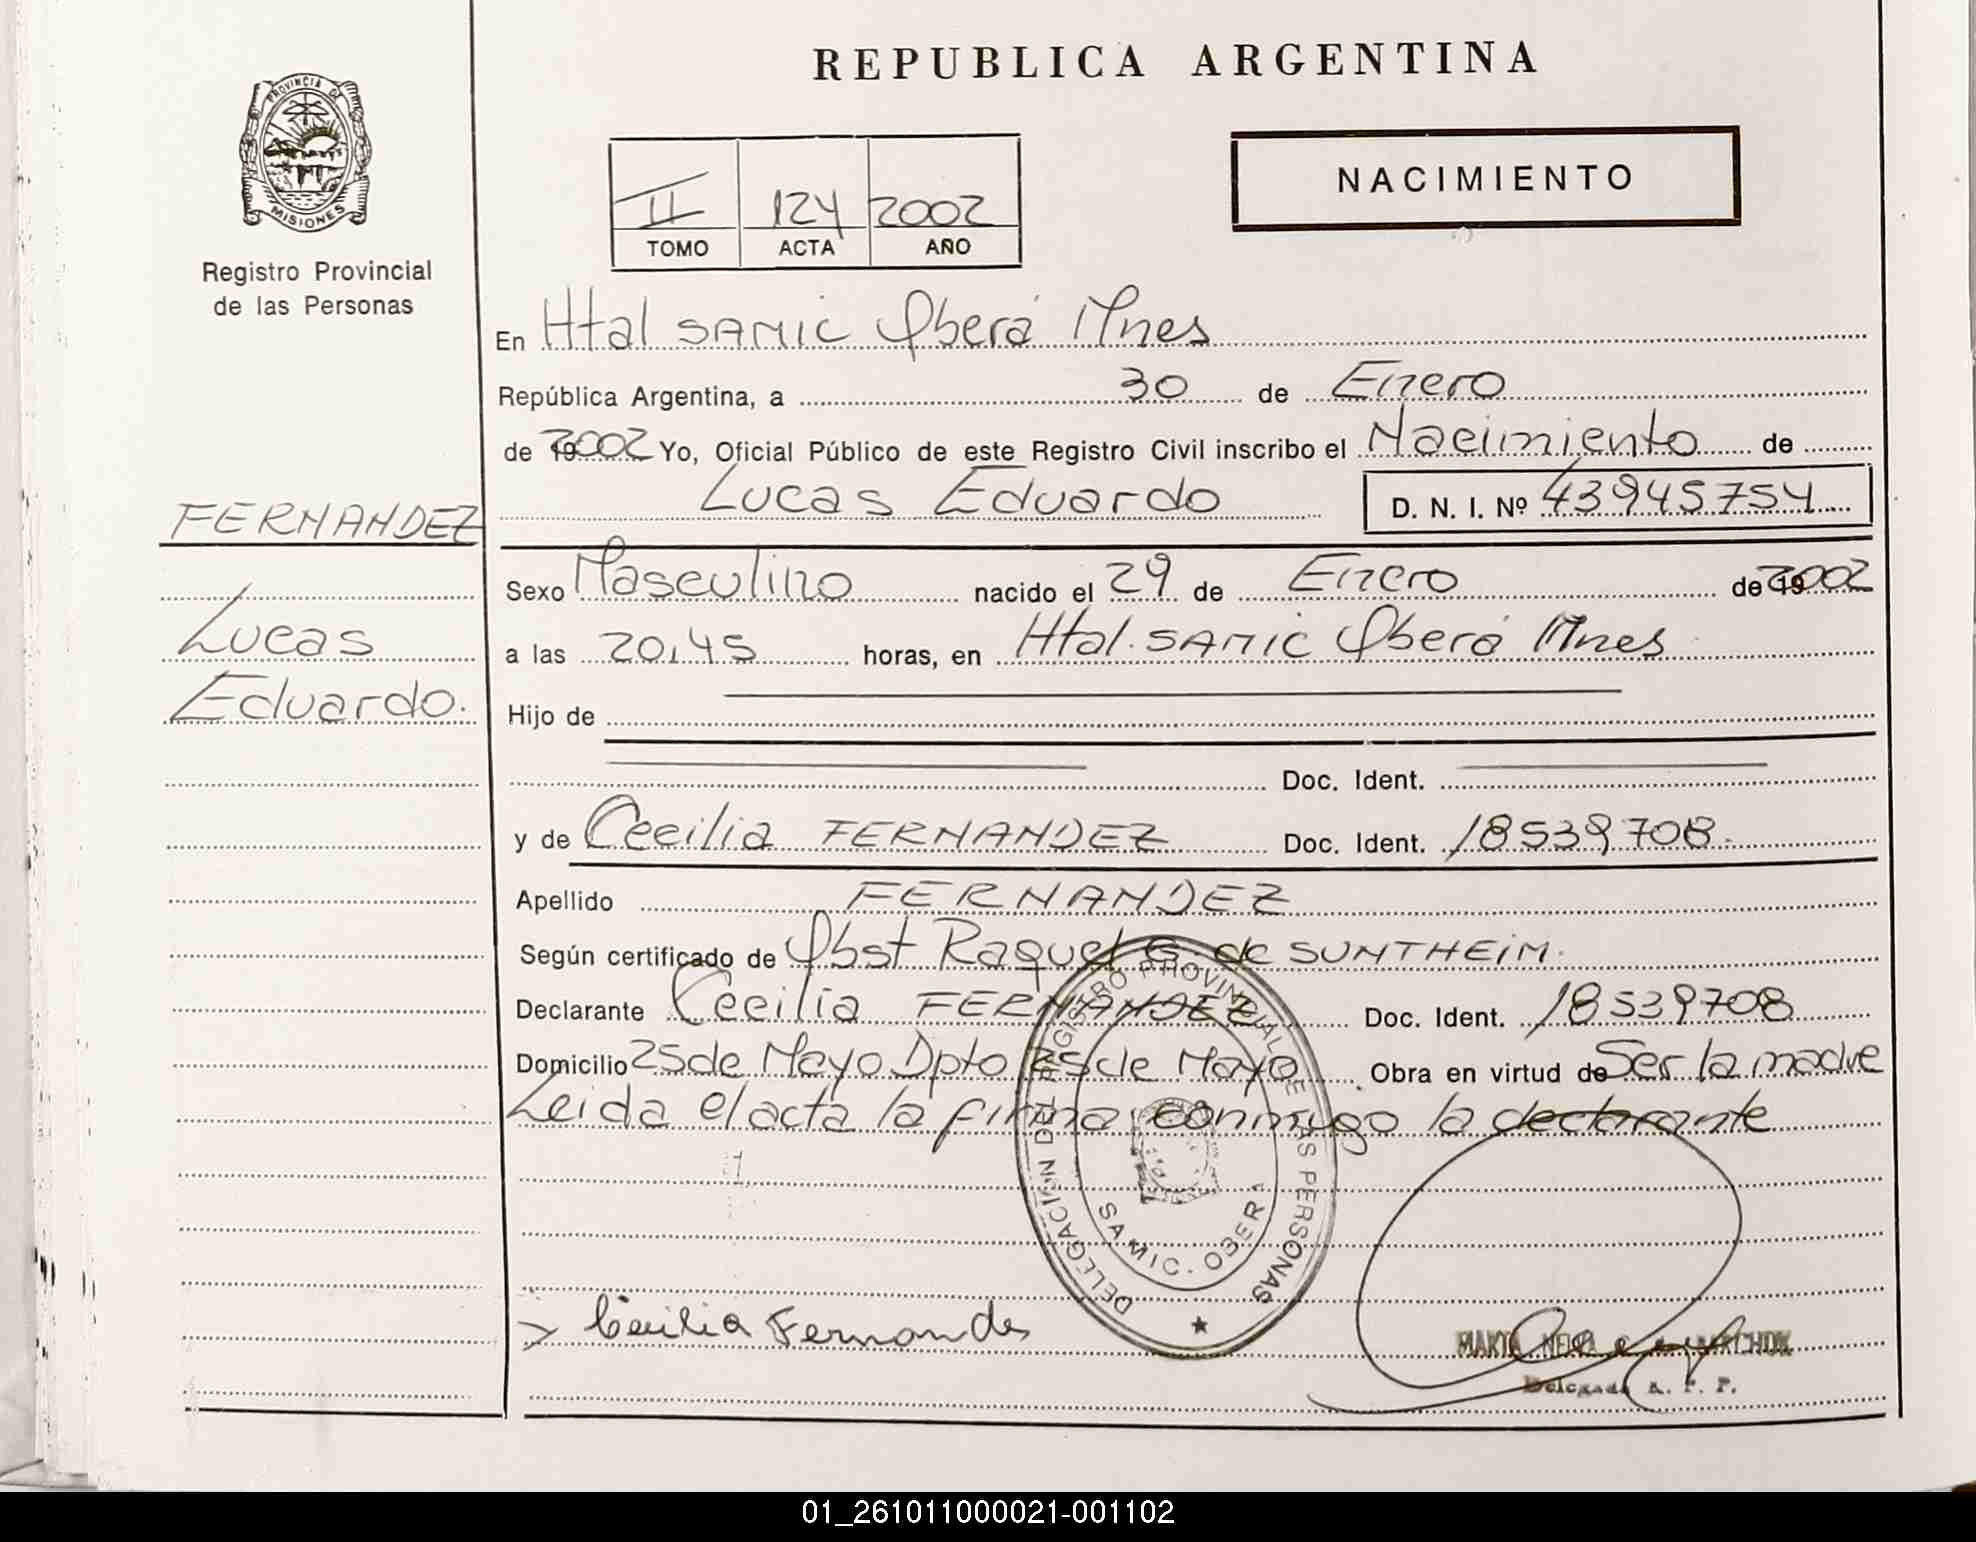 REPUBLICA ARGENTINA
PROVINCIA DE
MISIONES
Registro Provincial
de las Personas
II 124 2002
TOMO ACTA AÑO
NACIMIENTO
En Htal SAMIC Oberá Mnes
República Argentina, a 30 de Enero
de 2002 Yo, Oficial Público de este Registro Civil inscribo el Nacimiento de
Lucas Eduardo D. N. I. Nº 43945754
FERNANDEZ
Lucas
Eduardo.
Sexo Masculino nacido el 29 de Enero de 2002
a las 20,45 horas, en Htal. SAMIC Oberá Mnes
Hijo de
Doc. Ident.
y de Cecilia FERNANDEZ Doc. Ident. 18539708.
Apellido FERNANDEZ
Según certificado de Obst Raquel G. de SUNTHEIM.
Declarante Cecilia FERNANDEZ Doc. Ident. 18539708
Domicilio 25 de Mayo Dpto 25 de Mayo Obra en virtud de Ser la madre
Leida el acta la firma conmigo la declarante
DELEGACION DEL REGISTRO PROVINCIAL DE LAS PERSONAS
SAMIC. OBERA
Cecilia Fernandes
Delegada A. P. P.
01_261011000021-001102